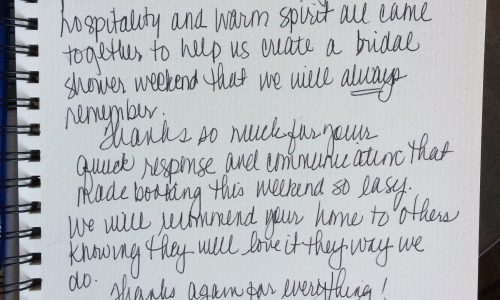 hospitality and warm spirit all came
together to help us create a bridal
shower weekend that we will always
remember.
Thanks so much for your
quick response and communication that
made booking this weekend so easy.
We will recommend your home to others
knowing they will love it they way we
do.
Thanks again for everything!